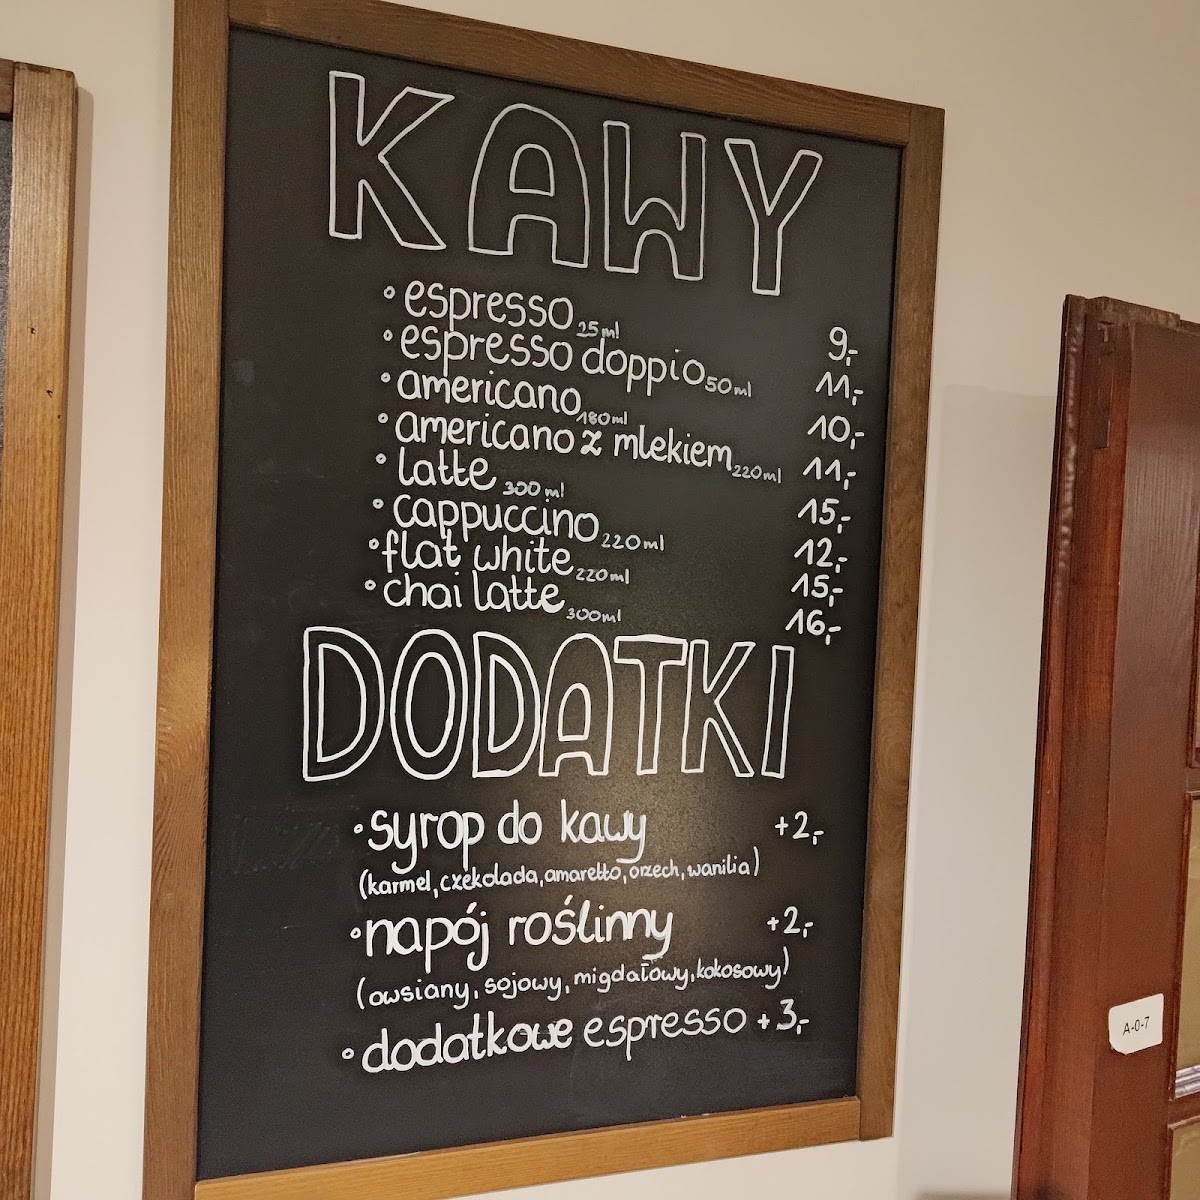 KAWY
• espresso 25ml 9,-
• espresso doppio 50ml 11,-
• americano 180ml 10,-
• americano z mlekiem 220ml 11,-
• latte 300ml 15,-
• cappuccino 220ml 12,-
• flat white 220ml 15,-
• chai latte 300ml 16,-
DODATKI
• syrop do kawy +2,-
(karmel, czekolada, amaretto, orzech, wanilia)
• napój roślinny +2,-
(owsiany, sojowy, migdałowy, kokosowy)
• dodatkowe espresso +3,-
A-0-7